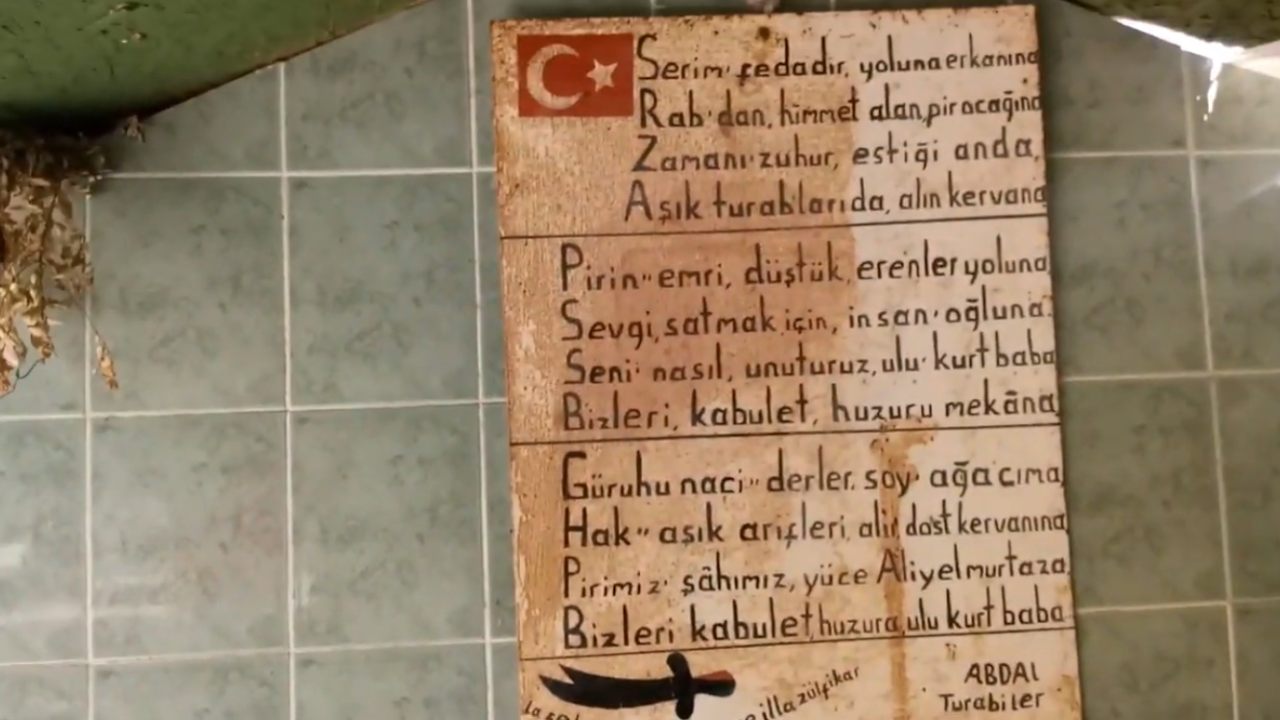 Serim' fedadır, yoluna erkanına
Rab'dan, himmet alan, pir ocağına
Zamanı zuhur, estiği anda,
Aşık turabları da, alın kervana
Pirin" emri, düştük, erenler yoluna,
Sevgi, satmak için, insan' oğluna.
Seni' nasıl, unuturuz, ulu' kurt baba
Bizleri, kabulet, huzuru mekâna,
Güruhu naci" derler, soy' ağacıma,
Hak" aşık arifleri, alır dost kervanına,
Pirimiz' şâhımız, yüce Aliyelmurtaza.
Bizleri kabulet, huzura, ulu kurt baba
illa zülfikar
ABDAL
Turabiler